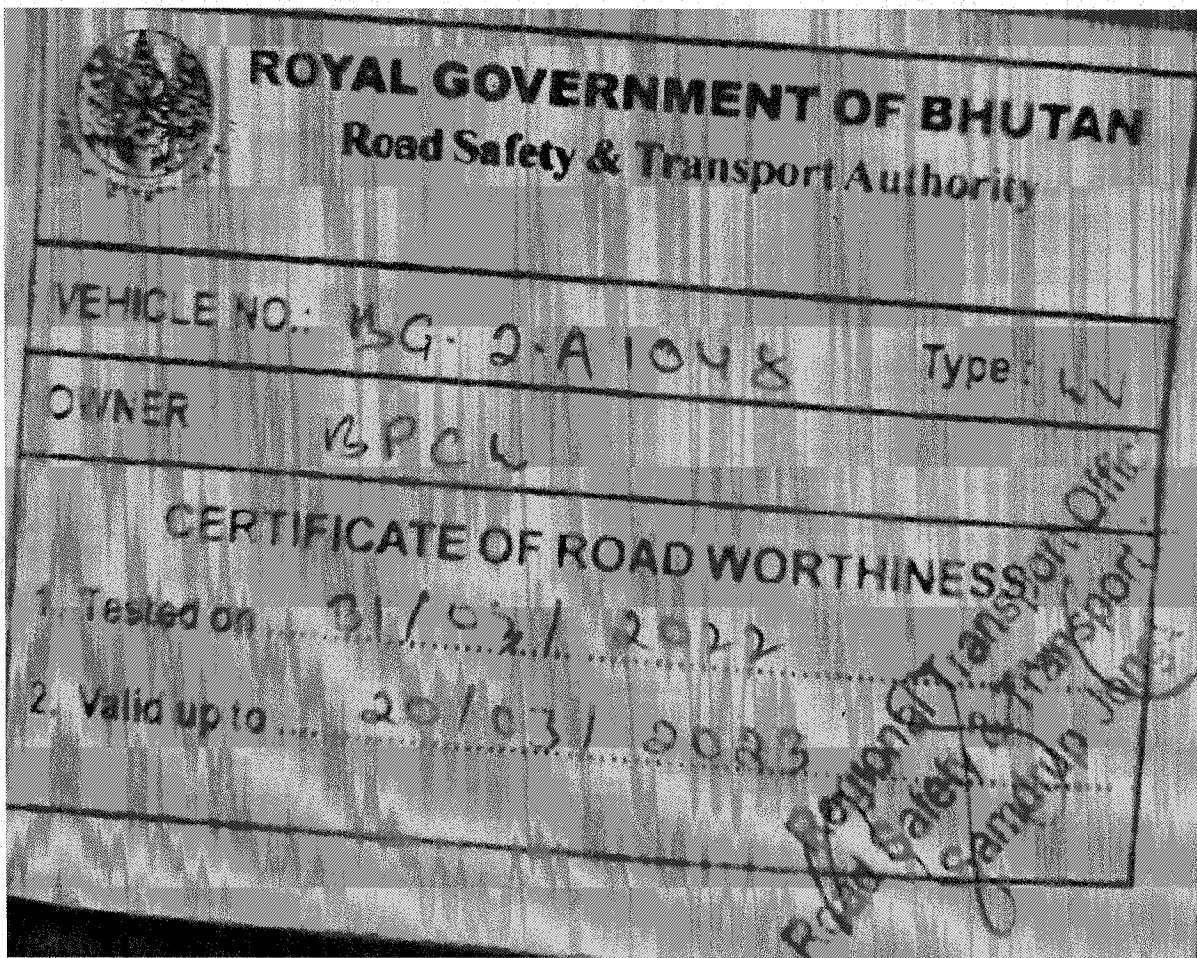 ROYAL GOVERNMENT OF BHUTAN
Road Safety & Transport Authority
VEHICLE NO.: BG-2-A1048 Type: LV
OWNER BPCL
CERTIFICATE OF ROAD WORTHINESS
1. Tested on 31/03/2022
2. Valid up to 20/03/2023
Regional Transport Offic
Road Safety & Transport
Samdrup Jongk